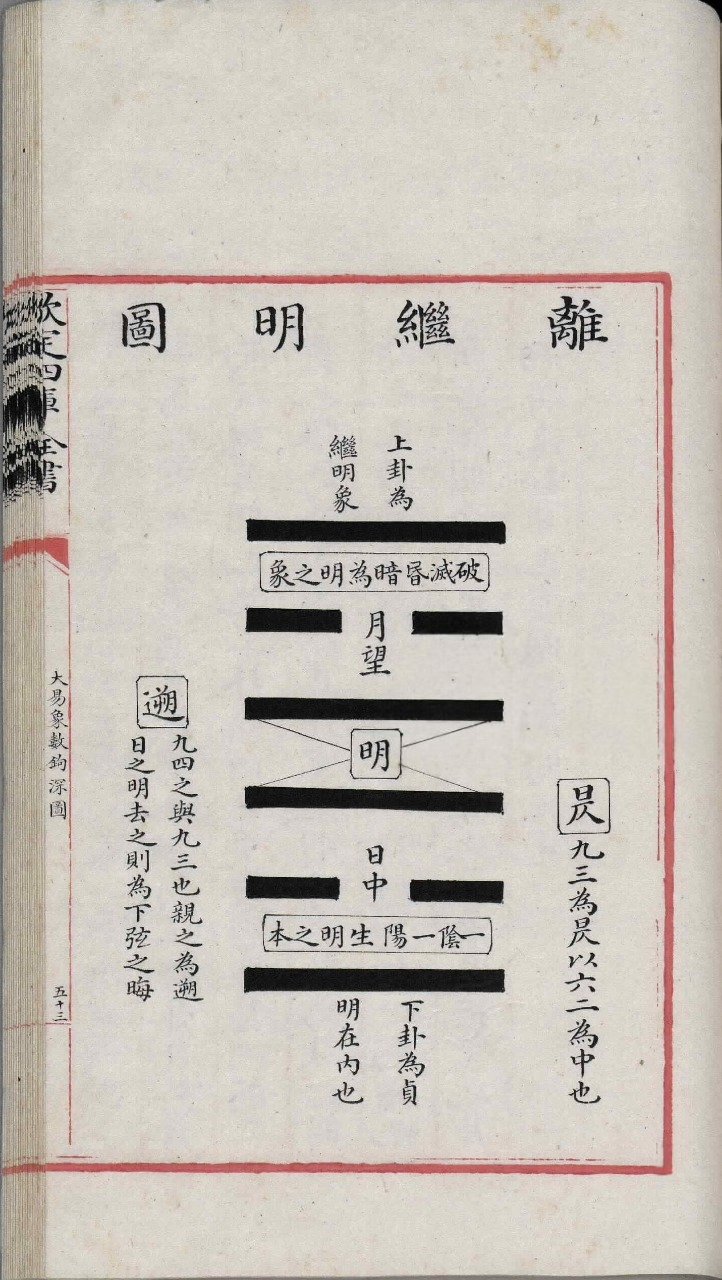 離繼明圖
上卦為
繼明象
破滅昬暗為明之象
月望
明
日中
一陰一陽生明之本
下卦為貞
明在内也
昃
九三為昃以六二為中也
遡
九四之與九三也親之為遡
日之明去之則為下弦之晦
欽定四庫全書
大易象數鉤深圖
五十三